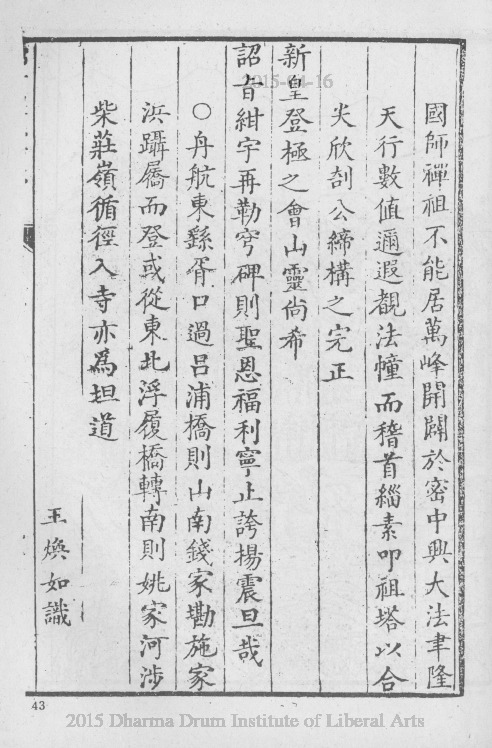 國師禪祖不能居萬峰開闢於密中興大法聿隆
天行數值邇遐覩法幢而稽首緇素叩祖塔以合
尖欣剖公締構之完正
新皇登極之會山靈尙希
詔旨紺宇再勒穹碑則聖恩福利寧止誇揚震旦哉
○舟航東繇胥口過呂浦橋則山南錢家㘛施家
浜躡屩而登或從東北浮履橋轉南則姚家河涉
柴莊嶺循徑入寺亦爲坦道
王煥如識
43
2015-04-16
2015 Dharma Drum Institute of Liberal Arts